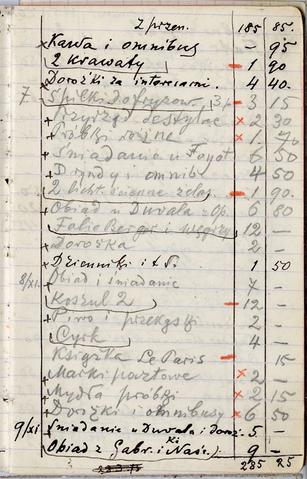 Z przen. 185 85.
× Kawa i omnibus — 95
2 Krawaty — 1 90
× Dorożki za interesami. 4 40
7 Spilki do fryzow., 3 15
+ Przyrząd destylac × 2 30
+ Próbki różne × 1 70
+ Śniadanie u Foyot 6 50
+ i omnib 4 50
2 licht. ścienne żelaz. — 1 90.
+ Obiad u Duvala z Op. 6 80
Foliesberger i 12 —
+ Dorożka 2 —
× Dzienniki i t p. 1 50
8/XI. Obiad i śniadanie 7 —
Koszul 2 — 12 —
+ Piwo i przekąski 2 —
Cyrk 4 —
Książka Le Paris — 15
+ Marki pocztowe × 2 —
+ Mydła próbki × 2 15
+ Dorożki i omnibusy × 6 50
9/XI Śniadanie u Duvala i doroż. 5 —
Obiad z Gabr. i 9 —
235 25